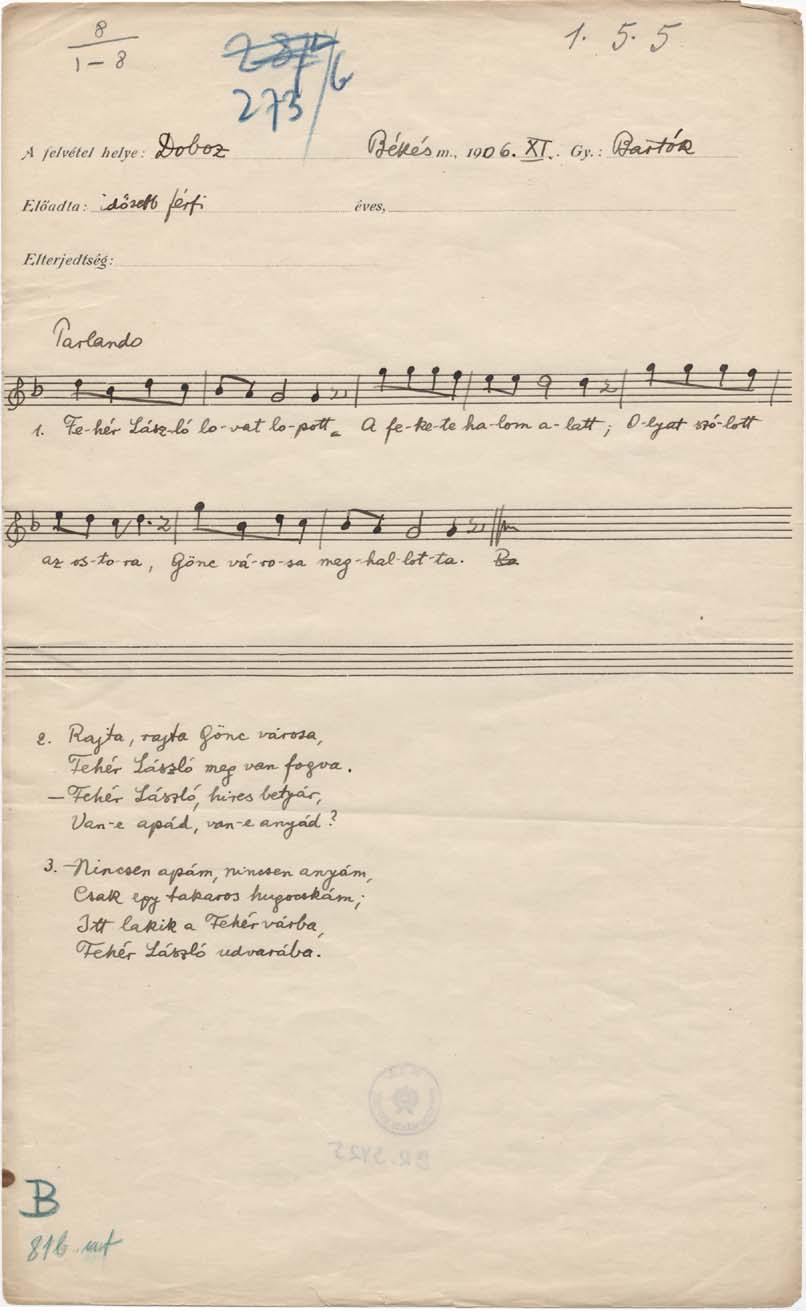 8
1–8
273/b
1. 5. 5
A felvétel helye: Doboz Békés m., 1906. XI. Gy.: Bartók
Előadta: idősebb férfi éves,
Elterjedtség:
Parlando
1. Fe-hér Lász-ló lo-vat lo-pott A fe-ke-te ha-lom a-latt; O-lyat szó-lott
az os-to-ra, Gönc vá-ro-sa meg-hal-lot-ta.
2. Rajta, rajta Gönc városa,
Fehér László meg van fogva.
– Fehér László, hires betyár,
Van-e apád, van-e anyád?
3. – Nincsen apám, nincsen anyám,
Csak egy takaros hugocskám;
Itt lakik a Fehérvárba,
Fehér László udvarába.
BR. 5425
B
81b